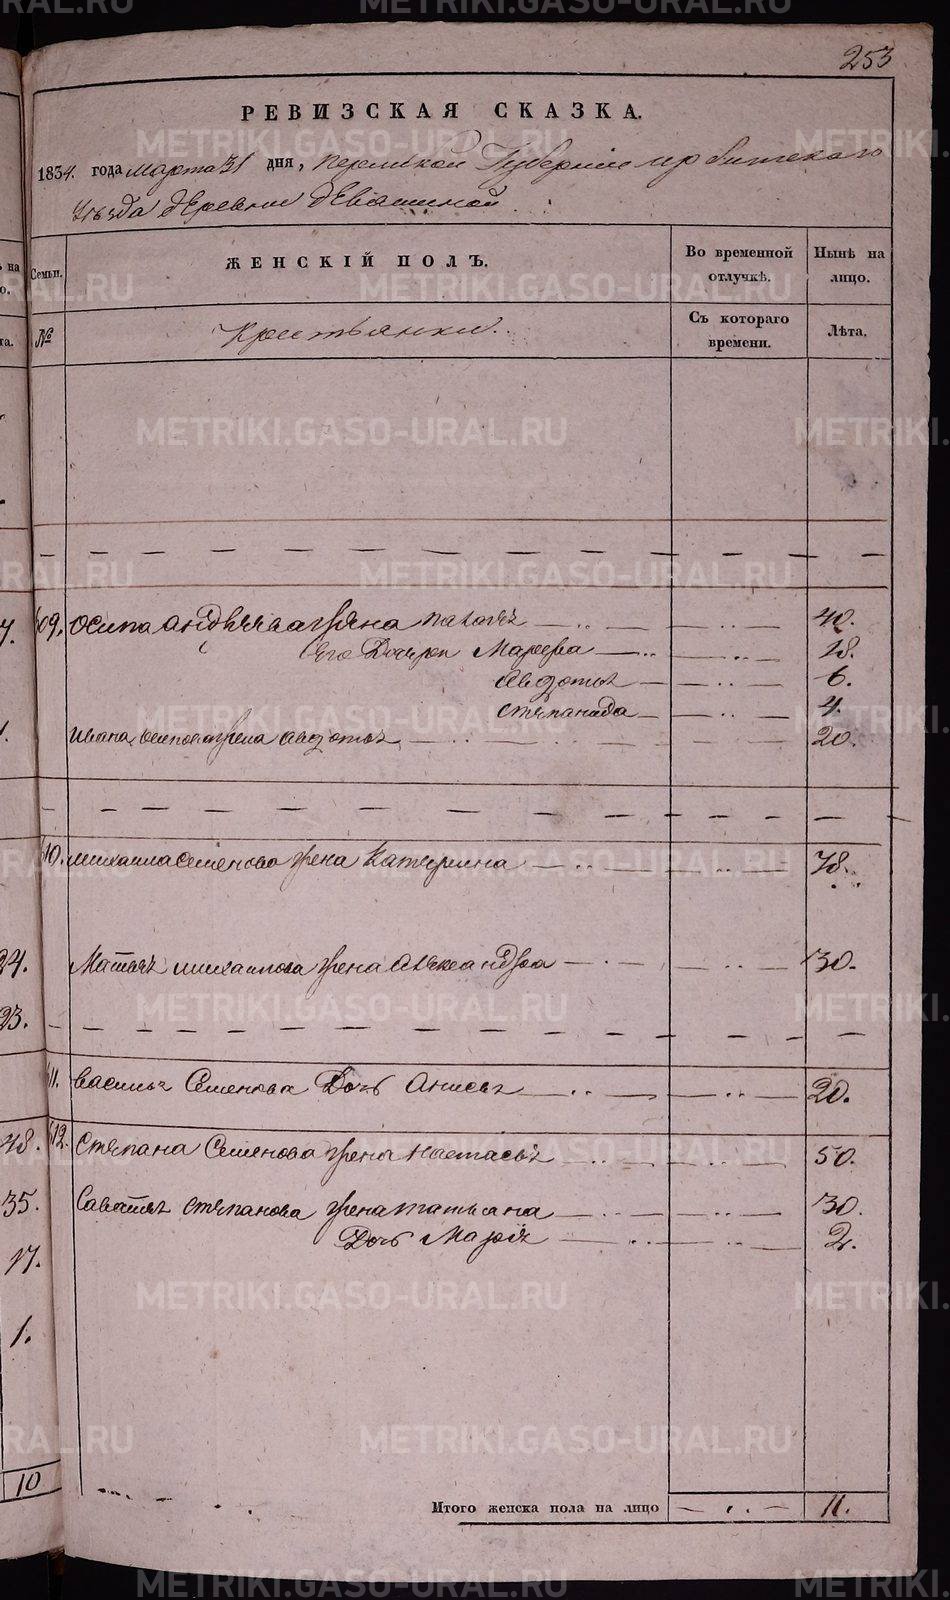 253
РЕВИЗСКАЯ СКАЗКА.
1834. года марта 31 дня, Пермской Губернии ирбитскаго
Уезда деревни девашиной
Семьи. ЖЕНСКІЙ ПОЛЪ. Во временной отлучкѣ. Нынѣ на лицо.
№ Крестьянки. Съ котораго времени. Лѣта.
7. 609. Осипа андреева жена 40.
Его Дочери Марфа 18.
Авдотья 6.
степанида 4.
1. Ивана осипова жена авдотья 20.
610. михаила семенова жена Катерина 78.
24. Матвея михаилова жена Александра 30.
23.
611. василья Семенова Дочь Анисья 20.
48. 612. Степана Семенова жена настасья 50.
35. Саватея степанова жена татьяна 30.
Дочь Марія 2.
17.
1.
10
Итого женска пола на лицо 11.
METRIKI.GASO-URAL.RU